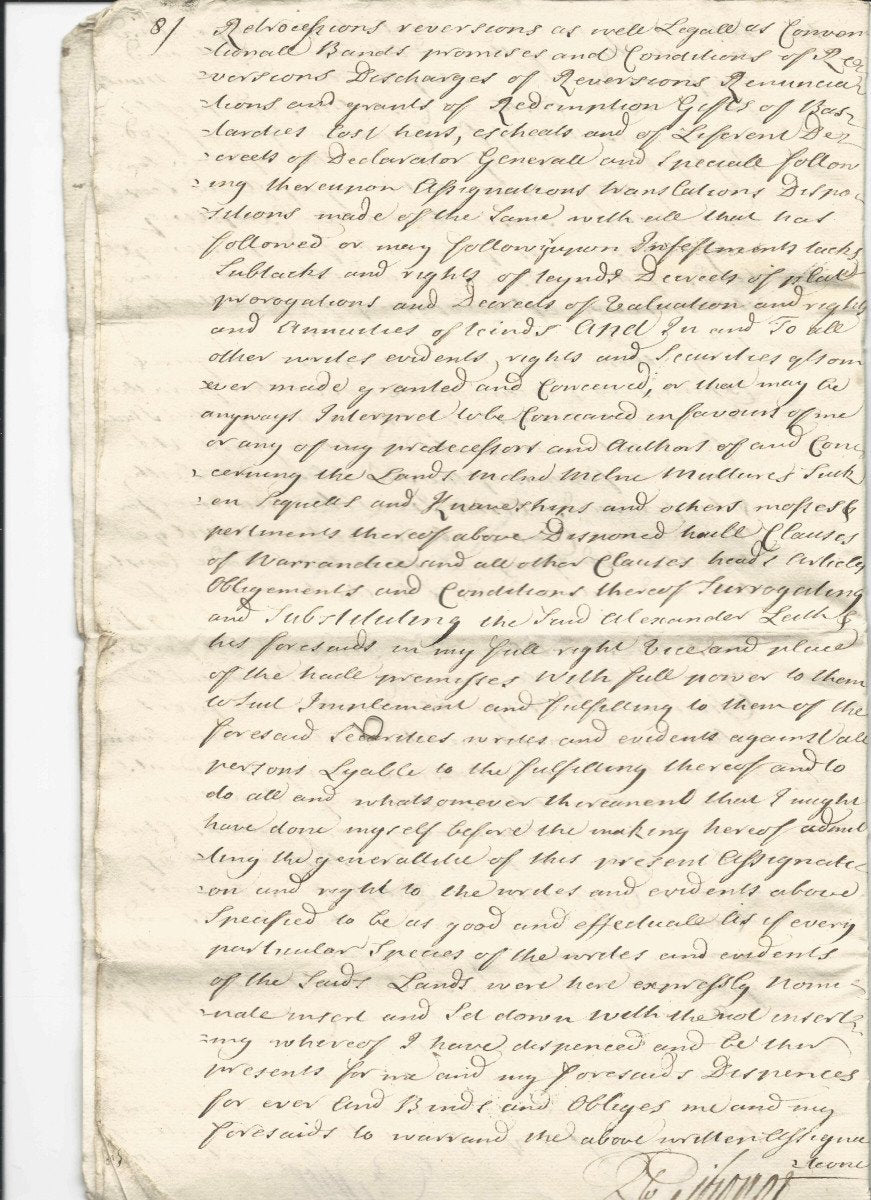 8/
Retrocessions reversions as well Legall as Conven
-tionall Bands promises and Conditions of Re-
-versions Discharges of Reversions Renuncia-
-tions and grants of Redemption Gifts of Bas-
-tardies Last heirs, escheats and of Liferent De-
-creets of Declarator Generall and Speciall follow
-ing thereupon Assignations translations Dispo-
-sitions made of the same with all that has
followed or may follow upon Infeftments tacks
Subtacks and rights of teynds Decreets of platt
prorogations and Decreets of Valuation and rights
and Annuities of teinds And In and To all
other writes evidents rights and Securities qtsom
-ever made granted and Conceived, or that may be
anyways Interpret to be Conceaved in favours of me
or any of my predecessors and Authors of and Con-
-cerning the Lands Milne Multures Suck
-en Sequells and Knaveships and others mosses &
pertinents thereof above Disponed haill Clauses
of Warrandice and all other Clauses heads Articles
Obligements and Conditions thereof Surrogating
and Substituting the Said Alexander Leith &
his foresaids in my full right Vice and place
of the haill premisses With full power to them
to Suit Implement and fulfilling to them of the
foresaid Securities writes and evidents against all
persons Lyable to the fulfilling thereof and to
do all and whatsomever thereanent that I might
have done myself before the making hereof admit
-ting the generallitie of this present Assignati-
-on and right to the writes and evidents above
Specified to be as good and effectuall As if every
particular Species of the writes and evidents
of the Saids Lands were here expressly nomi-
-nate insert and Set down With the not insert-
-ing whereof I have dispenced and be thir
presents for me and my foresaids Dispences
for ever And Binds and Obliges me and my
foresaids to warrand the above written Assigna
-tione